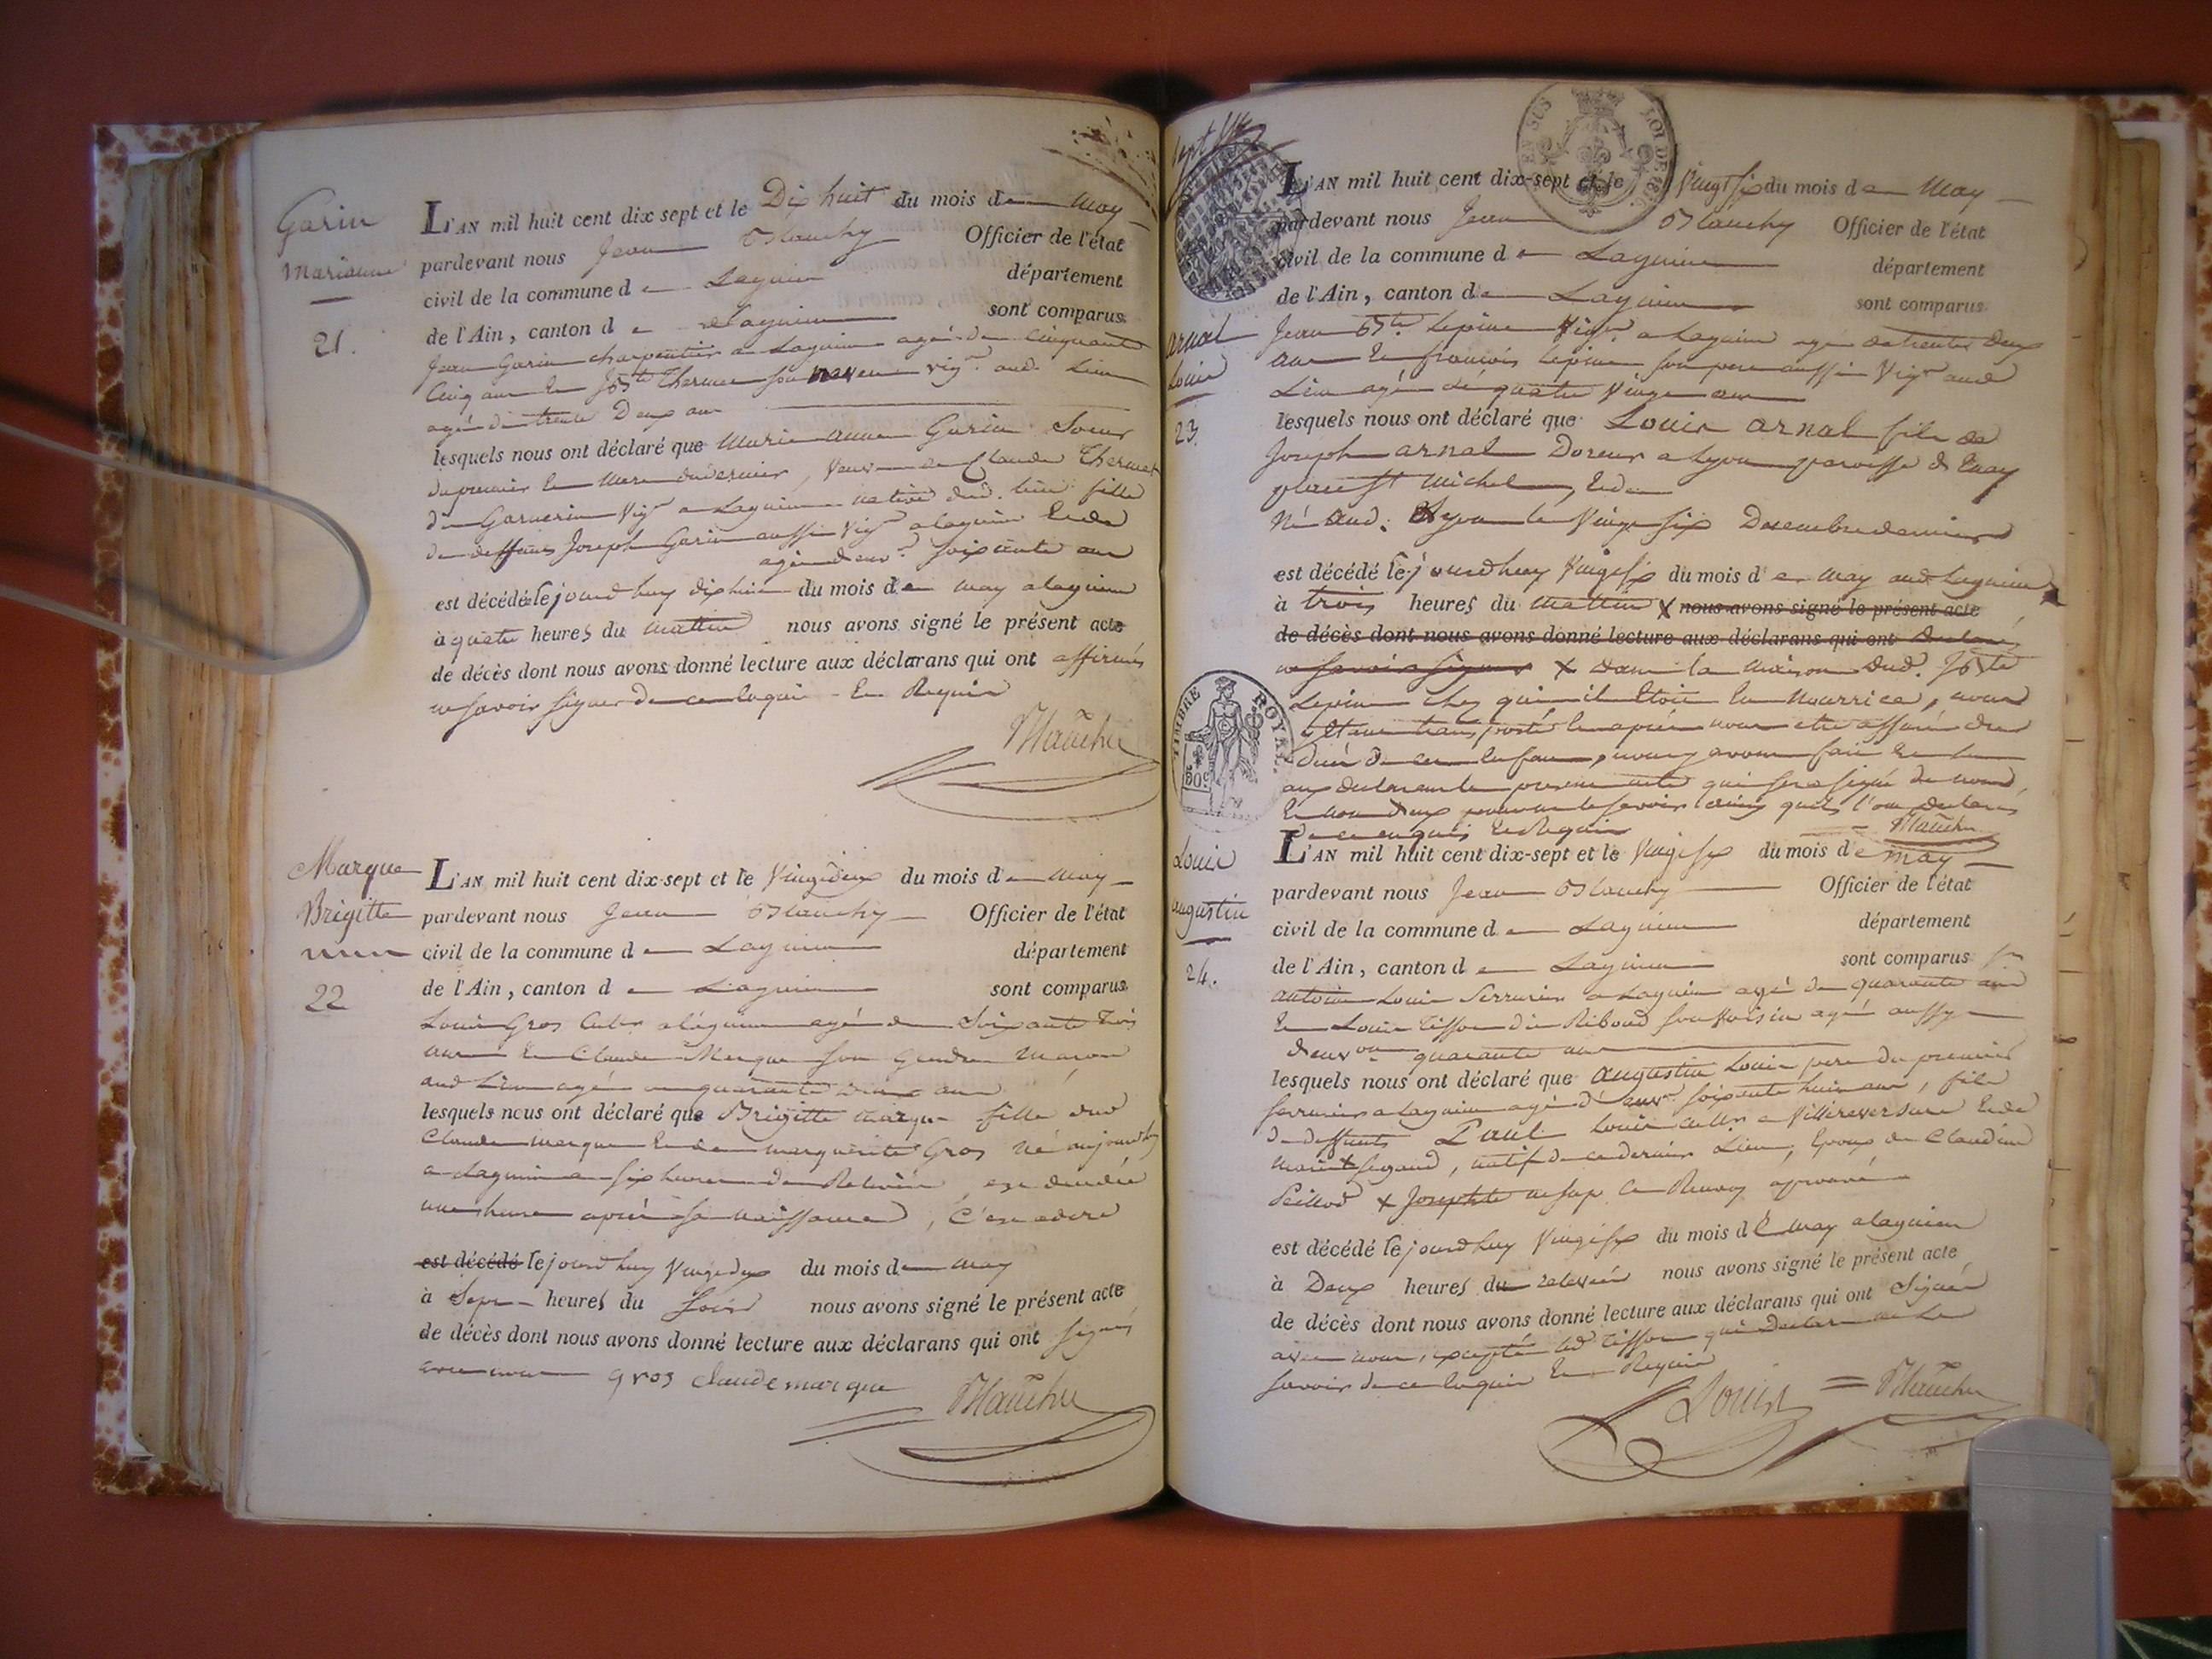 Garin
Marianne
21.
L'AN mil huit cent dix sept et le Dix huit du mois de May
pardevant nous Jean Blanchy Officier de l'état
civil de la commune de Lagnieu département
de l'Ain, canton de Lagnieu sont comparus
Jean Garin charpentier a Lagnieu agé de Cinquante
Cinq ans et Jbte Thermet son neveu vigr aud. Lieu
agé de trente Deux ans
lesquels nous ont déclaré que Marie Anne Garin Soeur
du premier et Mere du dernier, Veuve de Claude Thermet
Vigr a Lagnieu native dud. lieu fille
de deffunts Joseph Garin aussi Vigr a lagnieu et de
agée d'envn soixante ans
est décédé le jourd'huy dix huit du mois de may a lagnieu
à quatre heures du mattin nous avons signé le présent acte
de décès dont nous avons donné lecture aux déclarans qui ont affirmés
ne savoir signer de ce enquis et Requis
Blanchy
Marque
Brigitte
22
L'AN mil huit cent dix-sept et le Vingt deux du mois de May
pardevant nous Jean Blanchy Officier de l'état
civil de la commune de Lagnieu département
de l'Ain, canton de Lagnieu sont comparus
Louis Gros Cultr a lagnieu agé de Soixante Trois
ans et Claude Marque son Gendre Maçon
aud Lieu agé quarante deux ans
lesquels nous ont déclaré que Brigitte Marque fille dud
Claude marque et de marguerite Gros né aujourd'huy
a Lagnieu a six heures de Relevée, est decedée
une heure après sa naissance, C'est adire
est décédé le jourd'huy Vingt deux du mois de may
à Sept heures du Soir nous avons signé le présent acte
de décès dont nous avons donné lecture aux déclarans qui ont signés
avec nous gros claude marque Blanchy
EN SUS ROI DE
arnal
Louis
23.
L'AN mil huit cent dix-sept et le Vingt six du mois de May
pardevant nous Jean Blanchy Officier de l'état
civil de la commune de Lagnieu département
de l'Ain, canton de Lagnieu sont comparus
Jean Bte Lepine Vigr a Lagnieu agé de trente Deux
ans et françois Lepine son pere aussi Vigr aud
Lieu agé de quatre Vingt ans
lesquels nous ont déclaré que Louis arnal fils de
Joseph arnal Doreur a Lyon paroisse d'Enay
place St Michel, et de
Né aud. Lyon le Vingt six Decembre dernier
est décédé le jourd'huy Vingt six du mois de may aud Lagnieu
à trois heures du mattin X nous avons signé le présent acte
de décès dont nous avons donné lecture aux déclarans qui ont declarés
ne savoir signer X dans la maison dud. Jbte
Lepine chez qui il Etoit En Nourrice, nous
Etant transportés et après nous etre assuré du
décès de cet Enfant, nous avons fait et lu
aux declarants le present acte qui sera signé de nous
et non d'eux pour ne le savoir ainsy qu'ils l'ont declarés
de ce enquis et Requis
Blanchy
TIMBRE ROYAL
50c
Louis
augustin
24.
L'AN mil huit cent dix-sept et le Vingt six du mois de may
pardevant nous Jean Blanchy Officier de l'état
civil de la commune de Lagnieu département
de l'Ain, canton de Lagnieu sont comparus Sr
antoine Louis Serrurier a Lagnieu agé de quarante ans
et Louis Tissot dit Riboud son Voisin agé aussy
d'environ quarante ans
lesquels nous ont déclaré que augustin Louis pere du premier
serrurier a lagnieu agé d'envn soixante huit ans, fils
de deffunts Paul Louis cultr a Villereversure et de
Marie X segaud, natif de ce dernier Lieu, Epoux de Claudine
Peillod X Josephte
est décédé le jourd'huy Vingt six du mois de may a lagnieu
à Deux heures du relevée nous avons signé le présent acte
de décès dont nous avons donné lecture aux déclarans qui ont Signés
avec nous, excepté led Tissot qui Declare ne le
savoir de ce enquis et Requis
Louis Blanchy